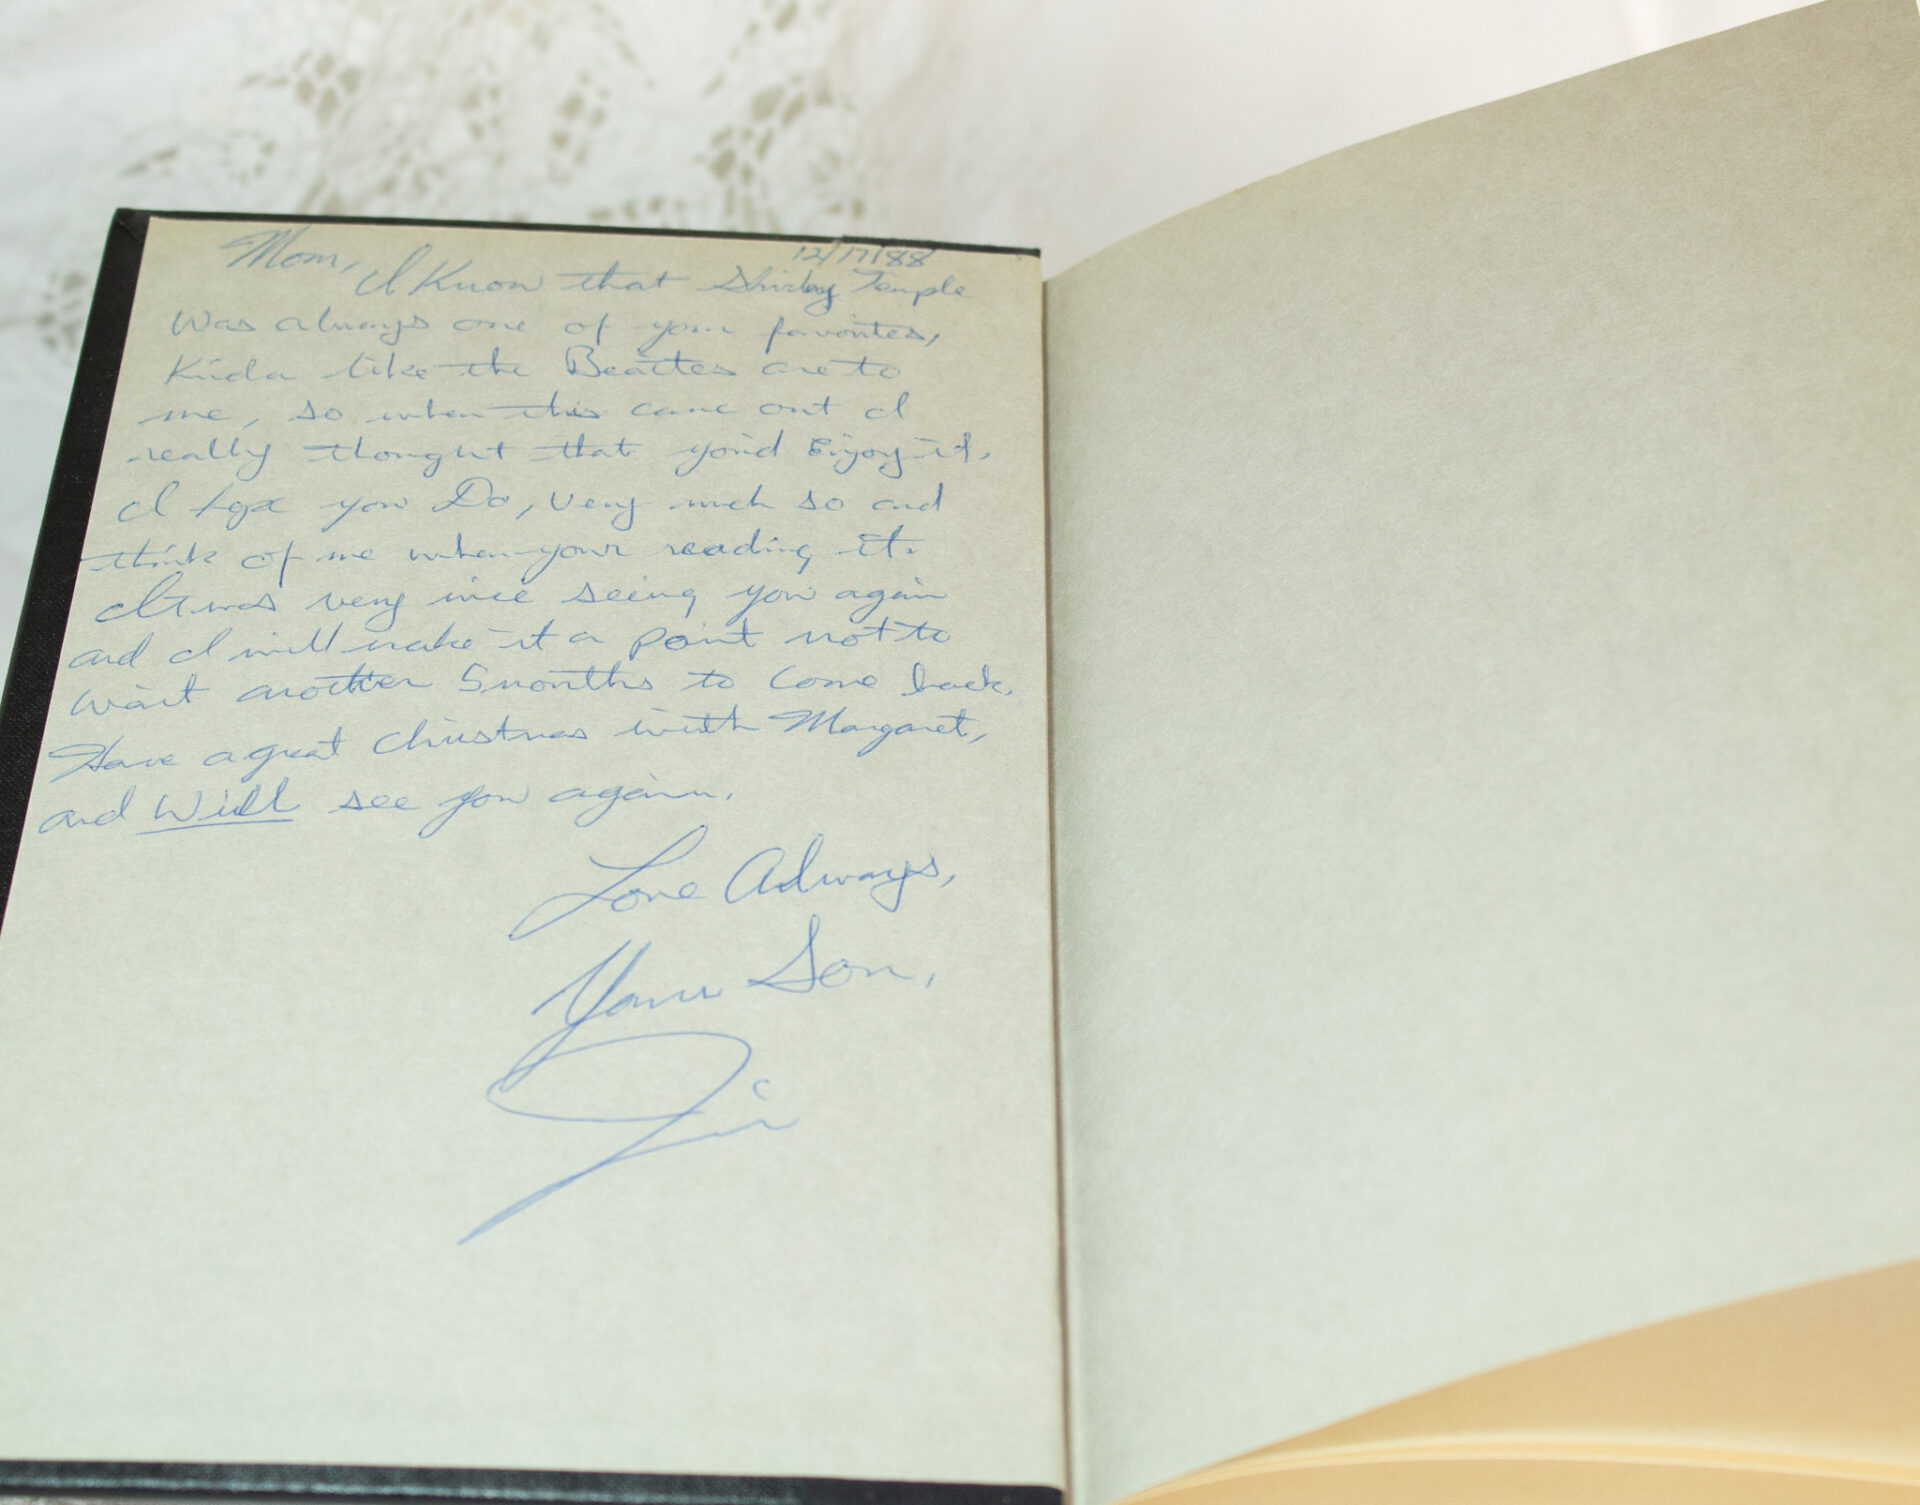 12/17/88
Mom,
I Know that Shirley Temple
Was always one of your favorites,
Kinda like the Beatles are to
me, so when this came out I
really thought that you'd Enjoy it.
I hope you Do, very much so and
think of me when your reading it.
It was very nice seeing you again
and I will make it a point not to
wait another 5 months to Come back.
Have a great Christmas with Margaret,
and Will see you again.
Love Always,
Your Son,